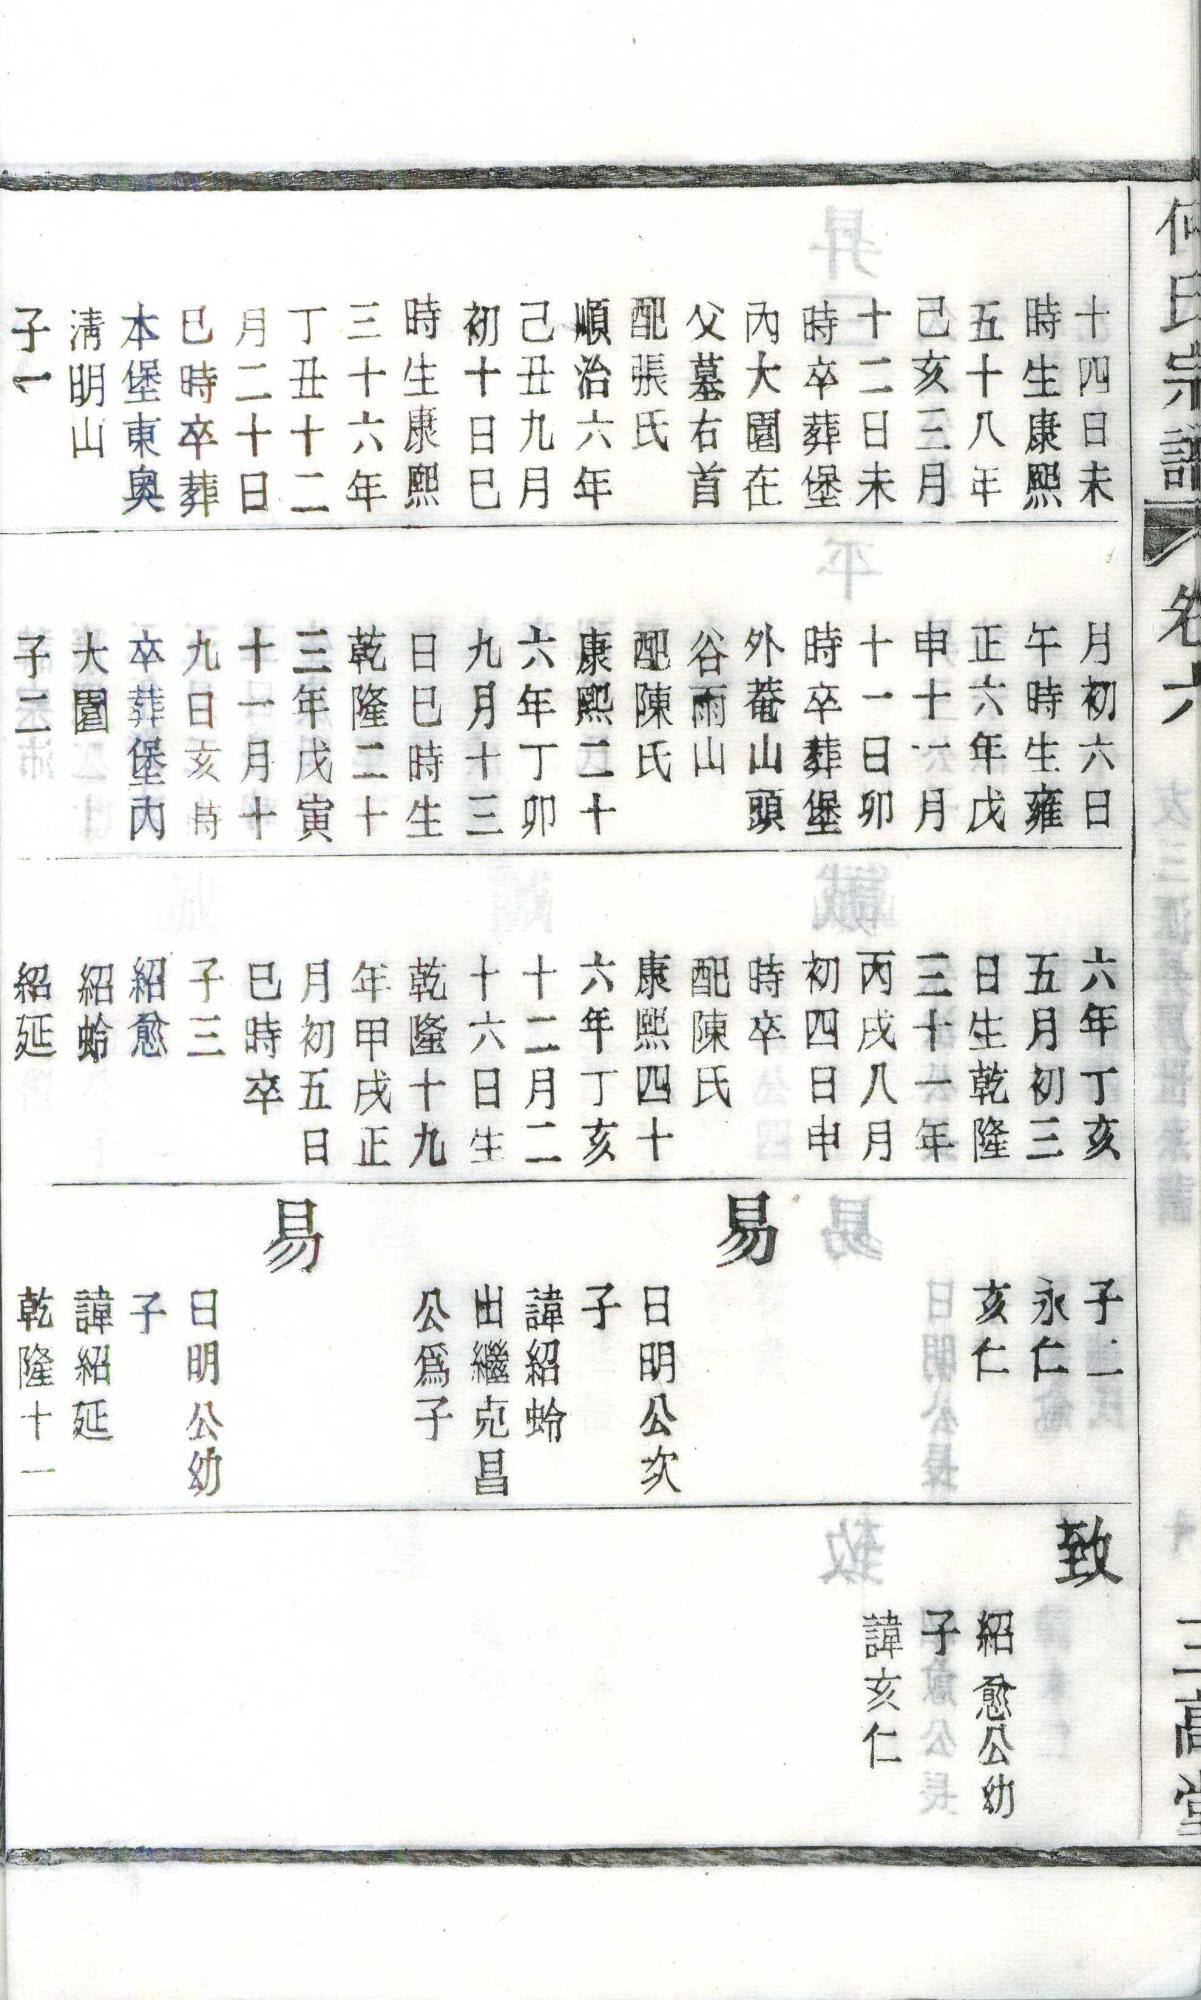 何氏宗譜
卷六
三高堂
十四日未
時生康熙
五十八年
己亥三月
十二日未
時卒葬堡
內大園在
父墓右首
配張氏
順治六年
己丑九月
初十日巳
時生康熙
三十六年
丁丑十二
月二十日
巳時卒葬
本堡東奧
淸明山
子一
月初六日
午時生雍
正六年戊
申十一月
十一日卯
時卒葬堡
外菴山頭
谷雨山
配陳氏
康熙二十
六年丁卯
九月十三
日巳時生
乾隆二十
三年戊寅
十一月十
九日亥時
卒葬堡內
大園
子二
六年丁亥
五月初三
日生乾隆
三十一年
丙戌八月
初四日申
時卒
配陳氏
康熙四十
六年丁亥
十二月二
十六日生
乾隆十九
年甲戌正
月初五日
巳時卒
子三
紹愈
紹蛉
紹延
子二
永仁
亥仁
易
日明公次
子
諱紹蛉
出繼克昌
公爲子
易
日明公幼
子
諱紹延
乾隆十一
致
紹愈公幼
子
諱亥仁